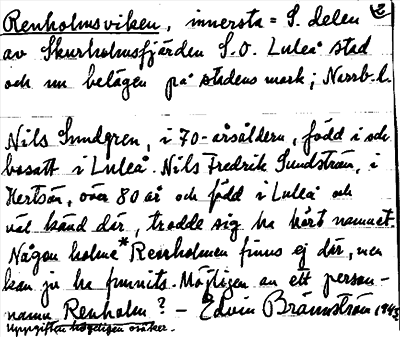 Renholmsviken, innersta = S. delen 2
av Skurholmsfjärden S.O. Luleå stad
och nu belägen på stadens mark; Norrb. l.
Nils Sundgren, i 70-årsåldern, född i och
bosatt i Luleå. Nils Fredrik Sundström, i
Hertsön, över 80 år och född i Luleå och
väl känd där, trodde sig ha hört namnet.
Någon holme *Renholmen finns ej där, men
kan ju ha funnits. Möjligen av ett person-
namn Renholm? - Edvin Brännström 1943
Uppgiften högeligen osäker.